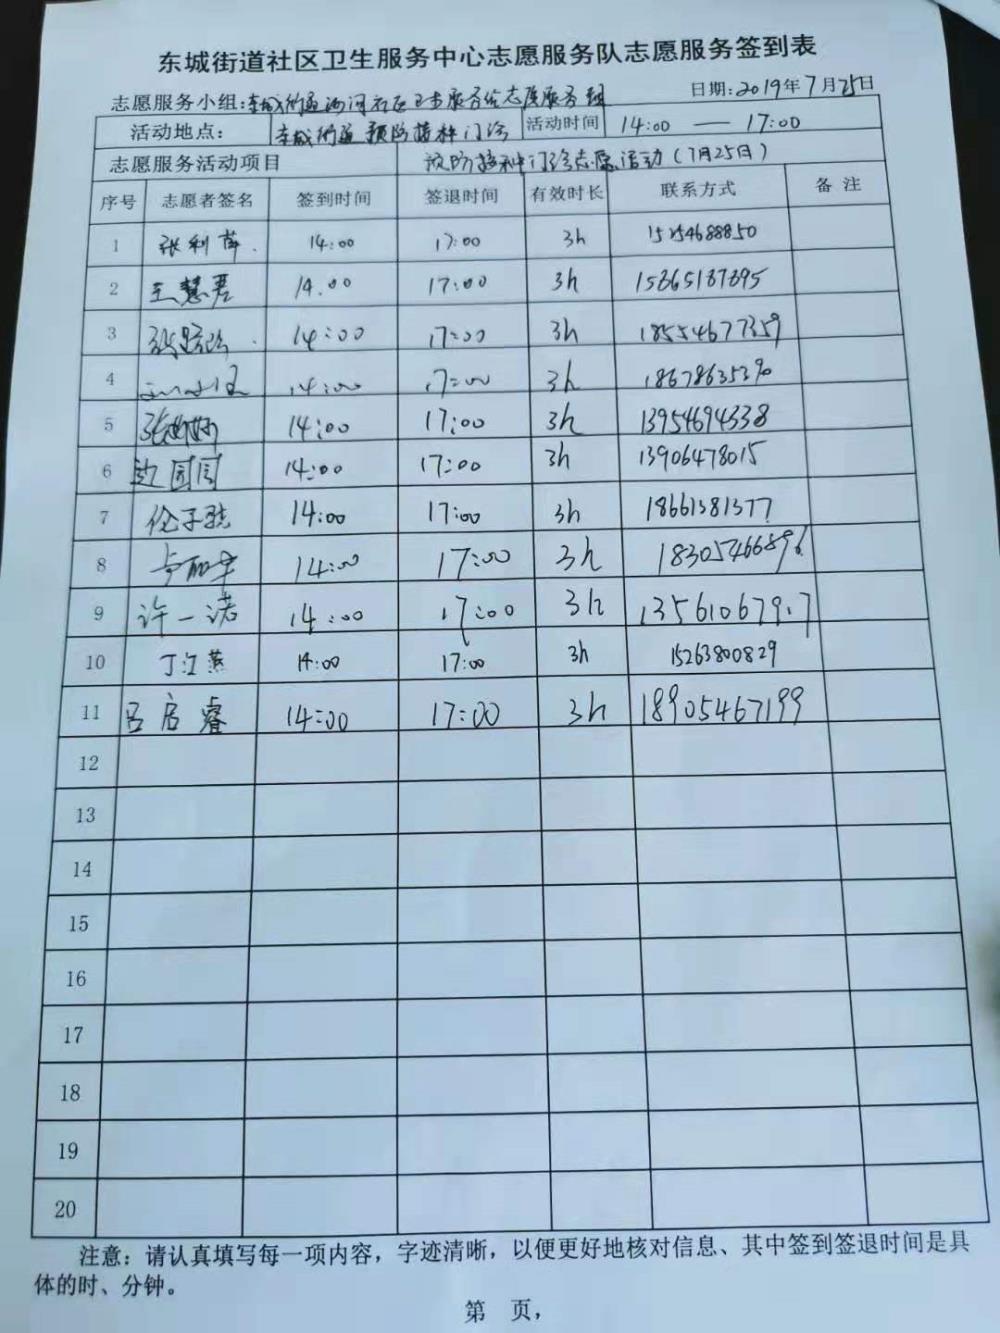 东城街道社区卫生服务中心志愿服务队志愿服务签到表
志愿服务小组:东城街道 社区卫生服务站志愿服务组 日期:2019年7月25日
活动地点: 东城街道预防接种门诊 活动时间 14:00 — 17:00
志愿服务活动项目 预防接种门诊志愿活动(7月25日)
序号 志愿者签名 签到时间 签退时间 有效时长 联系方式 备注
1 张利萍 14:00 17:00 3h 15154688850
2 王慧君 14:00 17:00 3h 15365187395
3 14:00 17:00 3h 18554677359
4 14:00 17:00 3h 18678635390
5 14:00 17:00 3h 13954694338
6 园园 14:00 17:00 3h 13906478015
7 伦子 14:00 17:00 3h 18661381377
8 14:00 17:00 3h 18305466896
9 许一诺 14:00 17:00 3h 13561067917
10 丁江燕 14:00 17:00 3h 15263800829
11 吕启睿 14:00 17:00 3h 18905467199
12
13
14
15
16
17
18
19
20
注意:请认真填写每一项内容,字迹清晰,以便更好地核对信息、其中签到签退时间是具
体的时、分钟。
第 页,